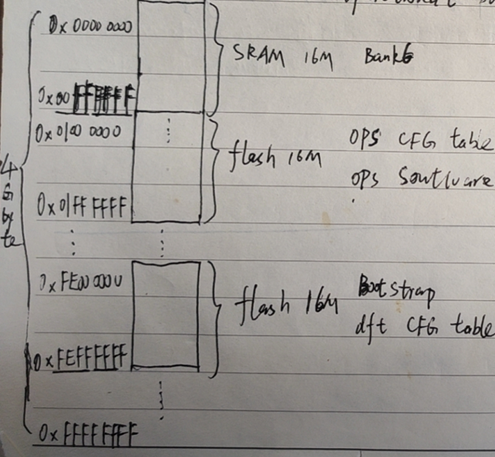 0x 0000 0000
SRAM 16M Bank6
0x00 FFFFFF
0x 0100 0000
flash 16M OPS CFG table
OPS Soutluare
0x 01FF FFFF
4 G byte
0x FE00 0000
flash 16M Bootstrap
dft CFG table
0x FEFFFFFF
0x FFFFFFFF